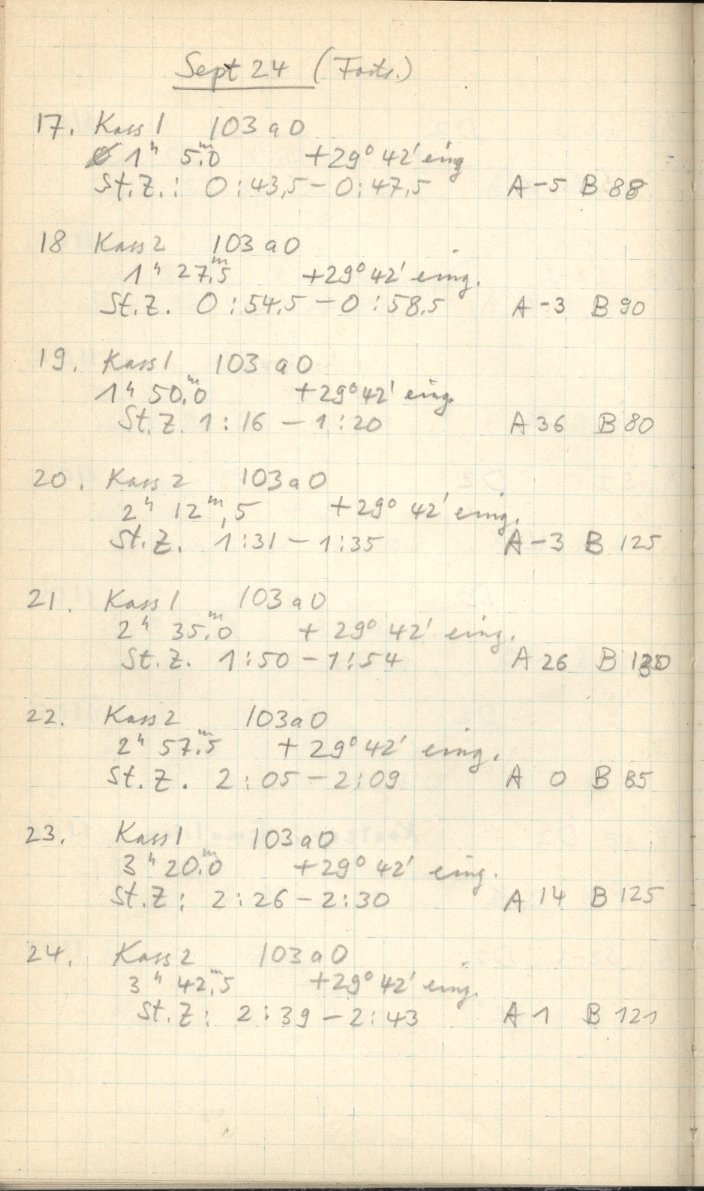 Sept 24 (Forts.)
17. Kass 1 103 a 0
1ʰ 5ᵐ.0 +29° 42' eing
St.Z.: 0:43,5 – 0:47,5 A -5 B 88
18 Kass 2 103 a 0
1ʰ 27ᵐ,5 +29° 42' eing.
St.Z. 0:54,5 – 0:58,5 A -3 B 90
19. Kass 1 103 a 0
1ʰ 50ᵐ,0 +29° 42' eing.
St.Z. 1:16 – 1:20 A 36 B 80
20. Kass 2 103 a 0
2ʰ 12ᵐ,5 +29° 42' eing.
St.Z. 1:31 – 1:35 A -3 B 125
21. Kass 1 103 a 0
2ʰ 35ᵐ,0 +29° 42' eing.
St.Z. 1:50 – 1:54 A 26 B
22. Kass 2 103 a 0
2ʰ 57ᵐ,5 +29° 42' eing.
St.Z. 2:05 – 2:09 A 0 B
23. Kass 1 103 a 0
3ʰ 20ᵐ,0 +29° 42' eing.
St.Z: 2:26 – 2:30 A 14 B 125
24. Kass 2 103 a 0
3ʰ 42ᵐ,5 +29° 42' eing.
St.Z: 2:39 – 2:43 A 1 B 121